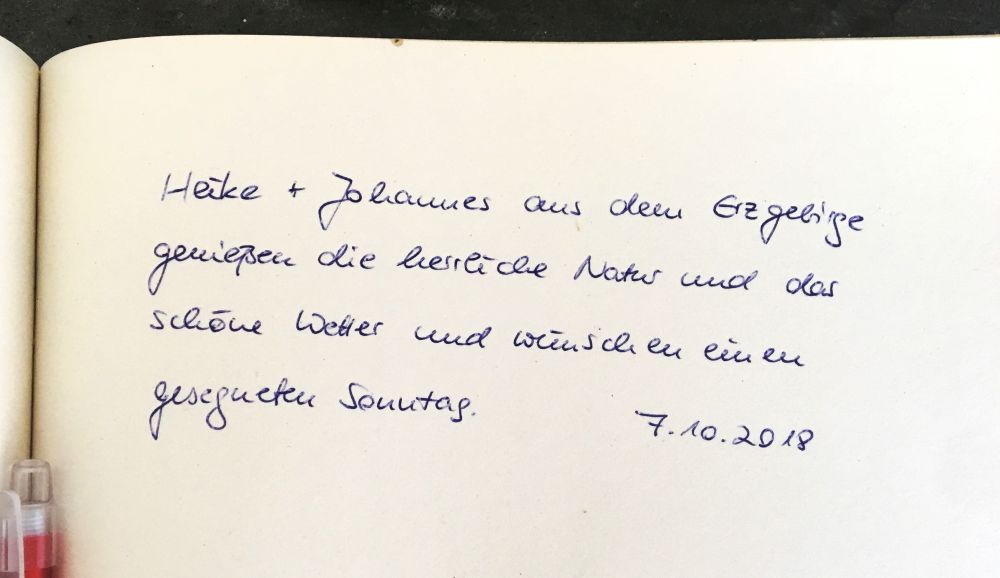 Heike + Johannes aus dem Erzgebirge
genießen die herrliche Natur und das
schöne Wetter und wünschen einen
gesegneten Sonntag.
7.10.2018